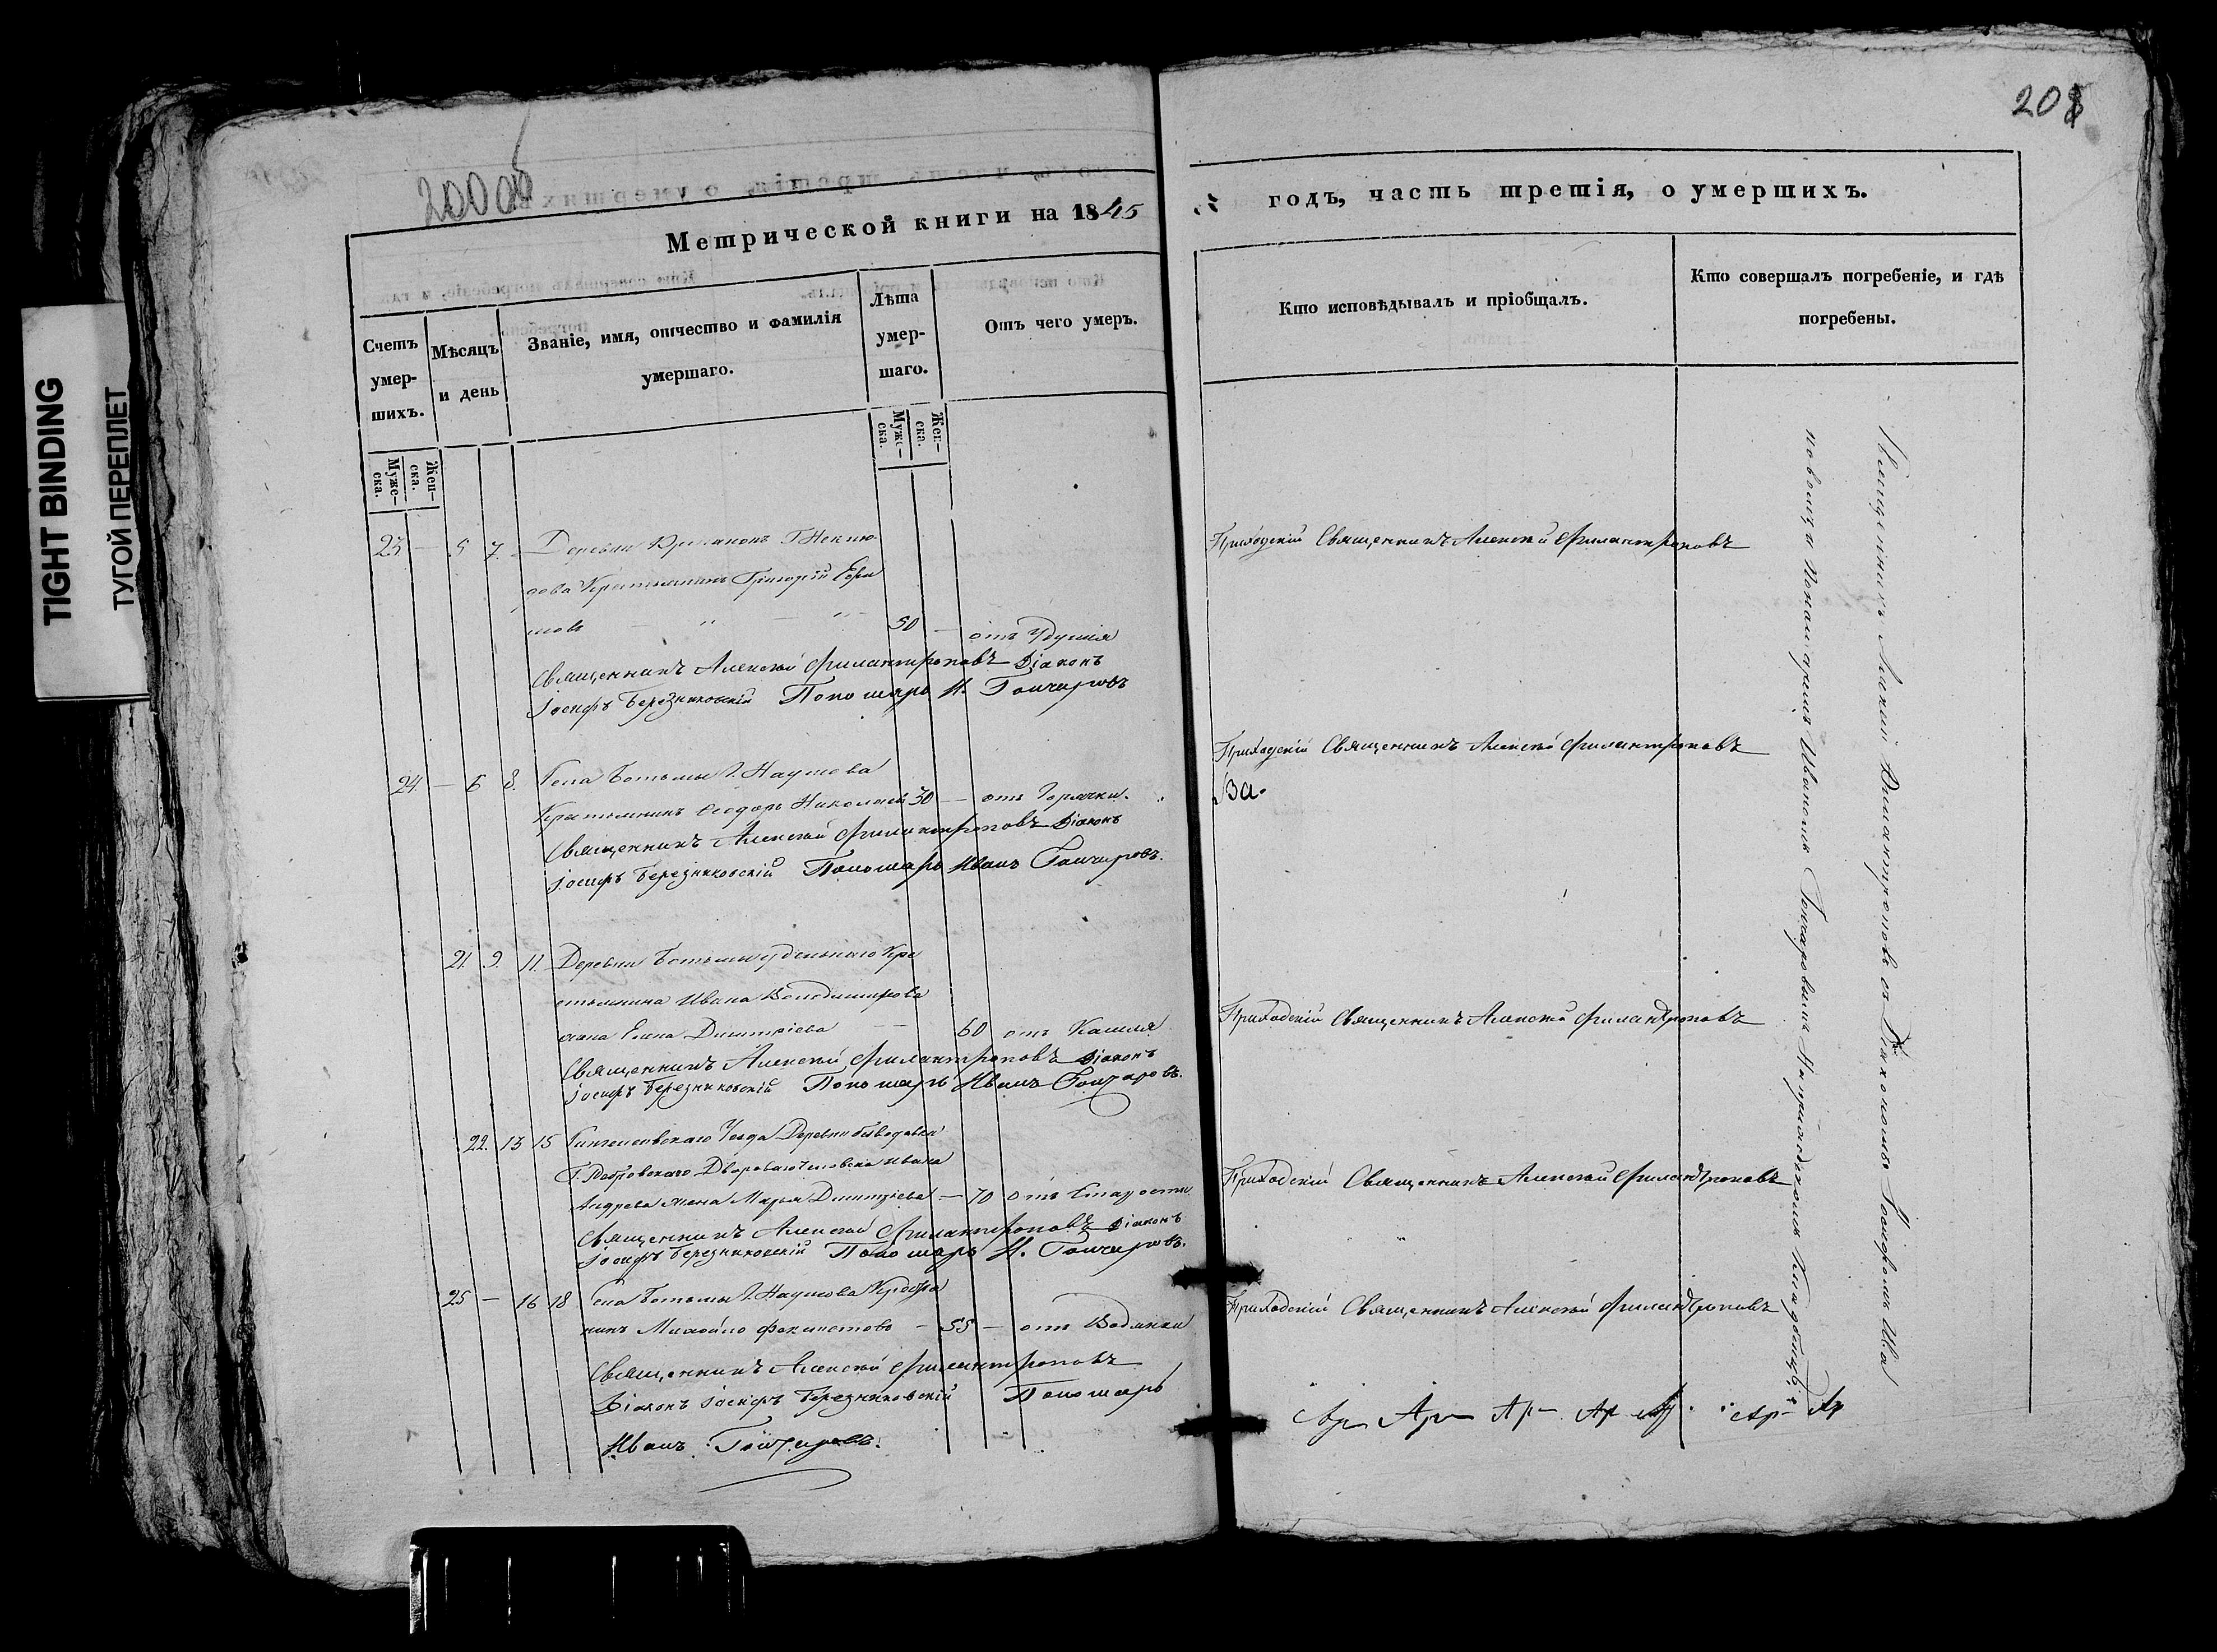 TIGHT BINDING
ТУГОЙ ПЕРЕПЛЕТ
208
Метрической книги на 1845
годъ, часть третія, о умершихъ.
Счетъ умер-шихъ.
Мѣсяцъ и день
Званіе, имя, отчество и фамилія умершаго.
Лѣта умер-шаго.
Отъ чего умеръ.
Кто исповѣдывалъ и пріобщалъ.
Кто совершалъ погребеніе, и гдѣ погребены.
Муже-ска.
Жен-ска.
Муже-ска.
Жен-ска.
23 — 5 7. Деревни
Крестьянинъ Григорій
мовъ — " — " 50 — отъ Удушія
Священникъ Алексѣй Филантроповъ Діаконъ
Іосифъ Березниковскій Пономарь И. Гончаровъ
Приходскій Священникъ Алексѣй Филантроповъ
24. — 6 8. Села Ботьмы Г. Наумова
Крестьянинъ Ѳеодоръ Николаевъ 30 — отъ Горячки.
Священникъ Алексѣй Филантроповъ Діаконъ
Іосифъ Березниковскій Пономарь Иванъ Гончаровъ.
Приходскій Священникъ Алексѣй Филантроповъ
21. 9. 11. Деревни Ботьмы удѣльнаго Кре
стьянина Ивана Володимирова
жена Елена Дмитріева — 60 отъ Кашля
Священникъ Алексѣй Филантроповъ Діаконъ
Іосифъ Березниковскій Пономарь Иванъ Гончаровъ.
Приходскій Священникъ Алексѣй Филантроповъ
22. 13 15 Уезда Деревни
Двороваго человека Ивана
Андреева жена Марья Дмитріева — 70 отъ Старости
Священникъ Алексѣй Филантроповъ Діаконъ
Іосифъ Березниковскій Пономарь И. Гончаровъ.
Приходскій Священникъ Алексѣй Филантроповъ
25 — 16 18 Села Ботьмы Г. Наумова
нинъ Михайло — 55 — отъ Водянки
Священникъ Алексѣй Филантроповъ
Діаконъ Іосифъ Березниковскій Пономарь
Иванъ Гончаровъ.
Приходскій Священникъ Алексѣй Филантроповъ
Священникъ Алексѣй Филантроповъ съ Діакономъ Іосифомъ
и Пономаремъ Иваномъ Гончаровымъ На приходскомъ Кладбищѣ.